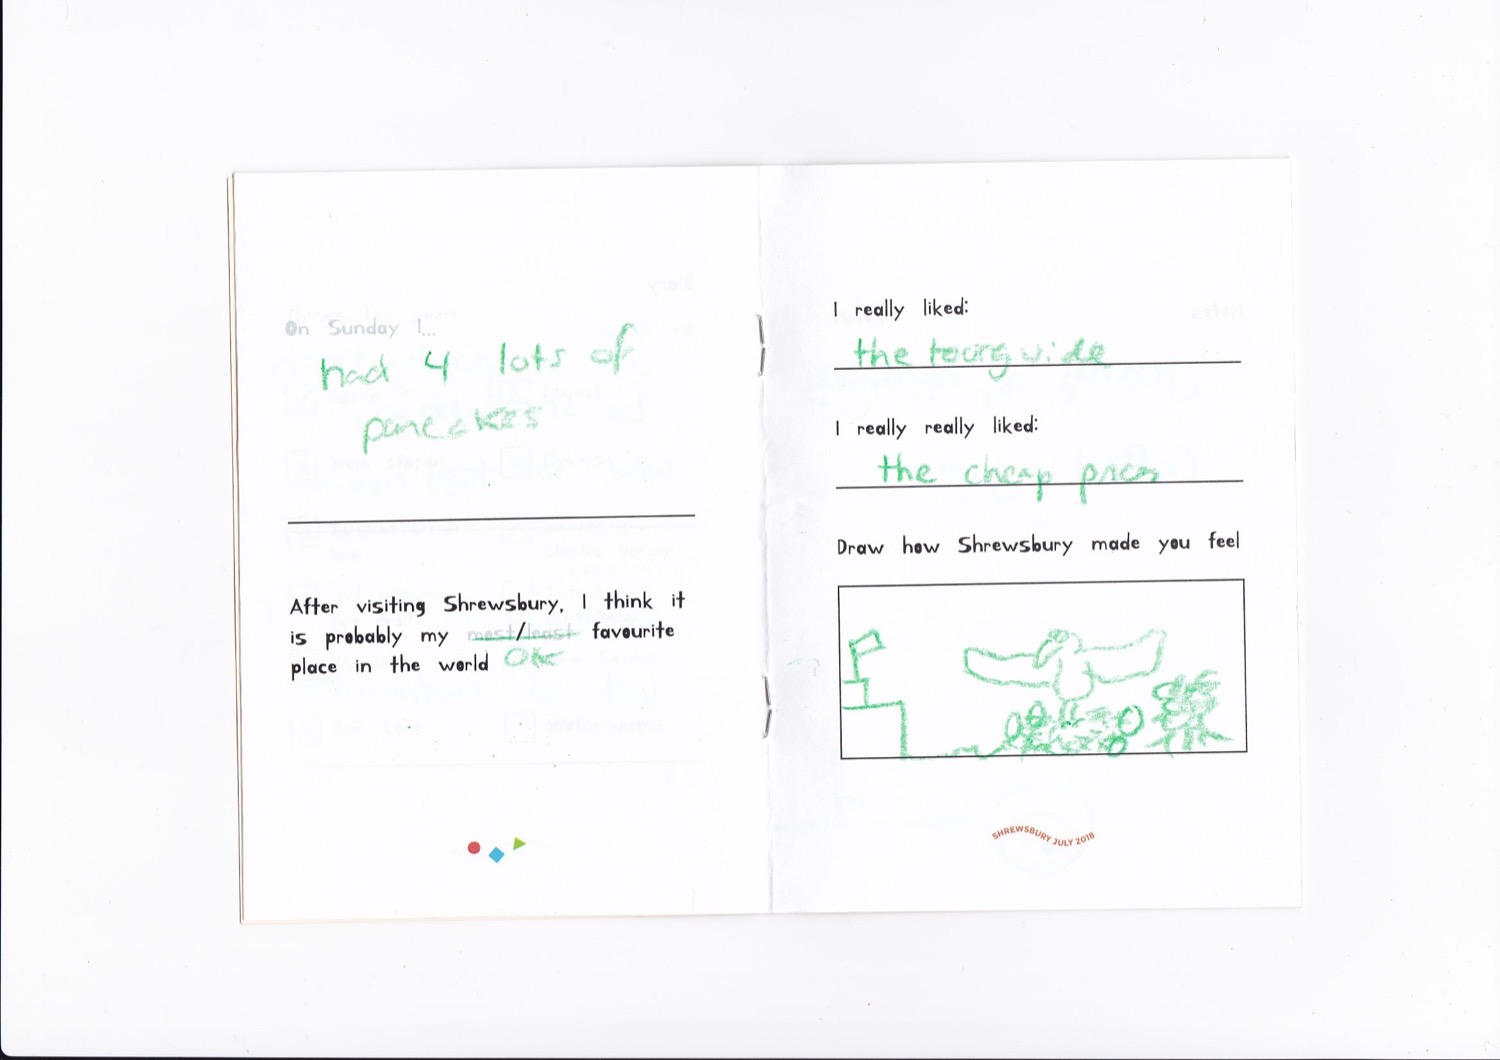 On Sunday I...
had 4 lots of
pancakes
After visiting Shrewsbury, I think it
is probably my most/least favourite
place in the world OK
I really liked:
the tourguide
I really really liked:
the cheap prices
Draw how Shrewsbury made you feel
SHREWSBURY JULY 2018